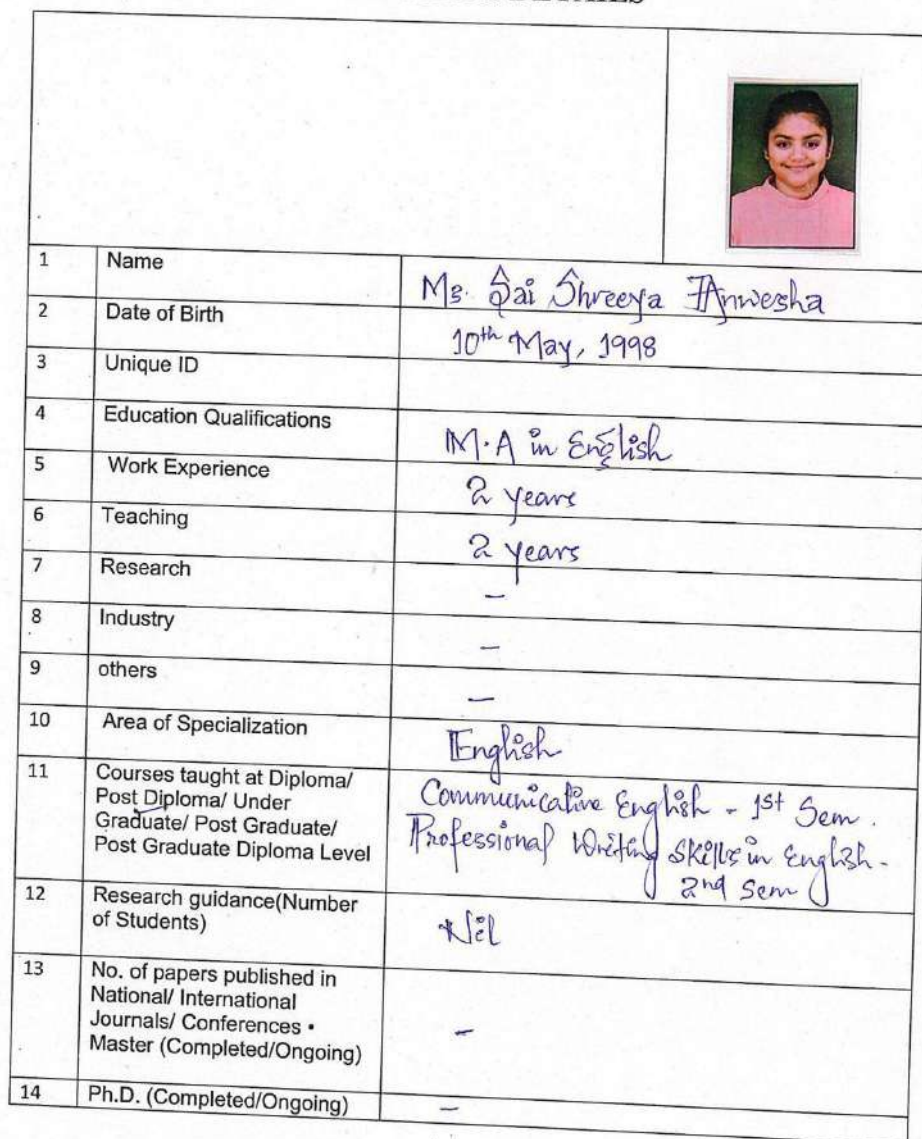 1 Name Ms. Sai Shreeya Anwesha
2 Date of Birth 10th May, 1998
3 Unique ID
4 Education Qualifications M.A in English
5 Work Experience 2 years
6 Teaching 2 years
7 Research –
8 Industry –
9 others –
10 Area of Specialization English
11 Courses taught at Diploma/
Post Diploma/ Under
Graduate/ Post Graduate/
Post Graduate Diploma Level
Communicative English - 1st Sem.
Professional Writing Skills in English -
2nd Sem
12 Research guidance(Number
of Students)
Nil
13 No. of papers published in
National/ International
Journals/ Conferences •
Master (Completed/Ongoing)
–
14 Ph.D. (Completed/Ongoing) –